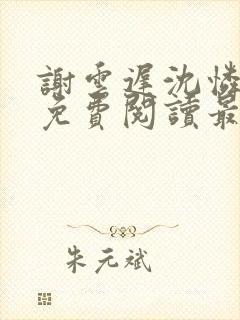 謝雲遲沈憐
免費閱讀最
朱元斌